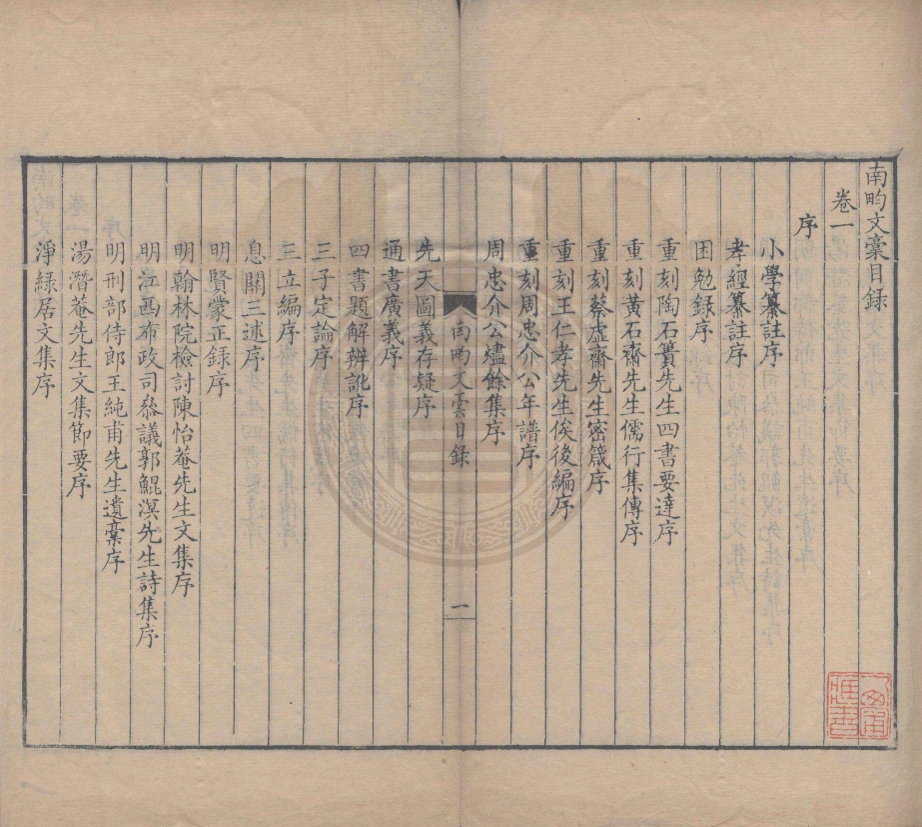 南畇文稾目録
卷一
序
小學纂註序
孝經纂註序
困勉錄序
重刻陶石簣先生四書要達序
重刻黃石齋先生儒行集傳序
重刻蔡虛齋先生密箴序
重刻王仁孝先生俟後編序
重刻周忠介公年譜序
周忠介公燼餘集序
南畇文稾目錄
一
先天圖義存疑序
通書廣義序
四書題解辨訛序
三子定論序
三立編序
息關三述序
明賢蒙正録序
明翰林院檢討陳怡菴先生文集序
明江西布政司叅議郭鯤溟先生詩集序
明刑部侍郎王純甫先生遺稾序
湯潛菴先生文集節要序
淨緑居文集序